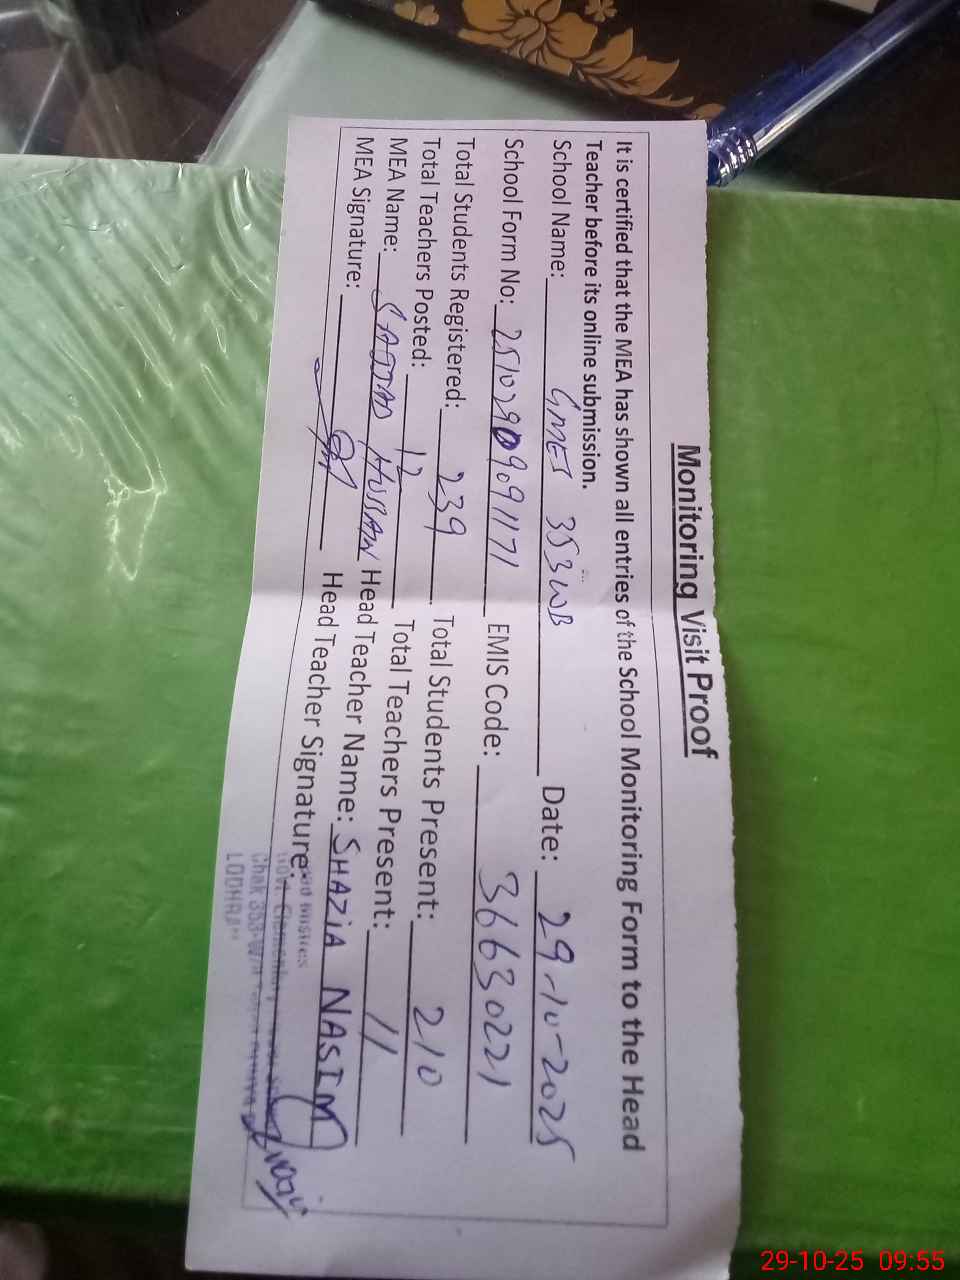 Monitoring Visit Proof
It is certified that the MEA has shown all entries of the School Monitoring Form to the Head
Teacher before its online submission.
School Name: GMES 353WB Date: 29-10-2025
School Form No: 25102909091171 EMIS Code: 36630221
Total Students Registered: 239 Total Students Present: 210
Total Teachers Posted: 12 Total Teachers Present: 11
MEA Name: SAJJAD HUSSAIN Head Teacher Name: SHAZiA NASIM
MEA Signature: Head Teacher Signature:
Govt. Elementary
Chak 353-W/B
LODHRAN
29-10-25 09:55